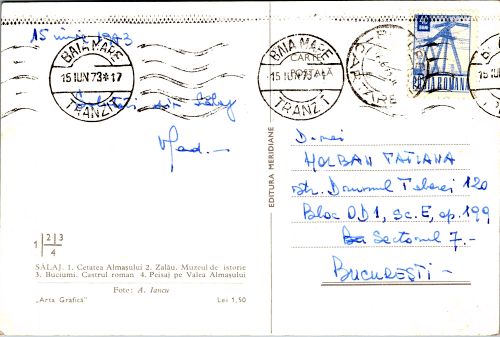 15 iunie 1973
BAIA MARE
15 IUN 73 * 17
TRANZIT
BAIA MARE
15 IUN 73
TRANZIT
CARTE
POȘTALĂ
40
BANI
POSTA ROMANA
Salutări din Sălaj
Vlad.
EDITURA MERIDIANE
D-nei
HOLBAN TATIANA
str. Drumul Taberei 120
Bloc OD1, sc. E, ap. 199
Sectorul 7.-
BUCUREȘTI -
1 2 3
4
SĂLAJ. 1. Cetatea Almașului 2. Zalău. Muzeul de istorie
3. Buciumi. Castrul roman 4. Peisaj pe Valea Almașului
Foto: A. Iancu
„Arta Grafică" Lei 1,50